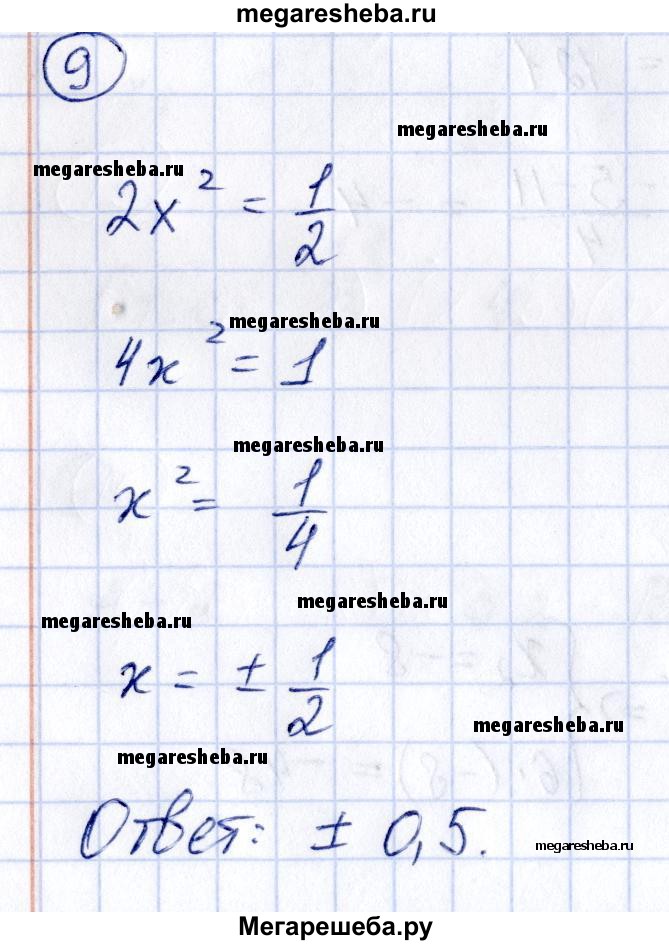 megaresheba.ru
9
megaresheba.ru
megaresheba.ru
2x² = 1/2
megaresheba.ru
4x² = 1
megaresheba.ru
x² = 1/4
megaresheba.ru
megaresheba.ru
x = ± 1/2
megaresheba.ru
megaresheba.ru
Ответ: ± 0,5.
megaresheba.ru
Мегарешеба.ру